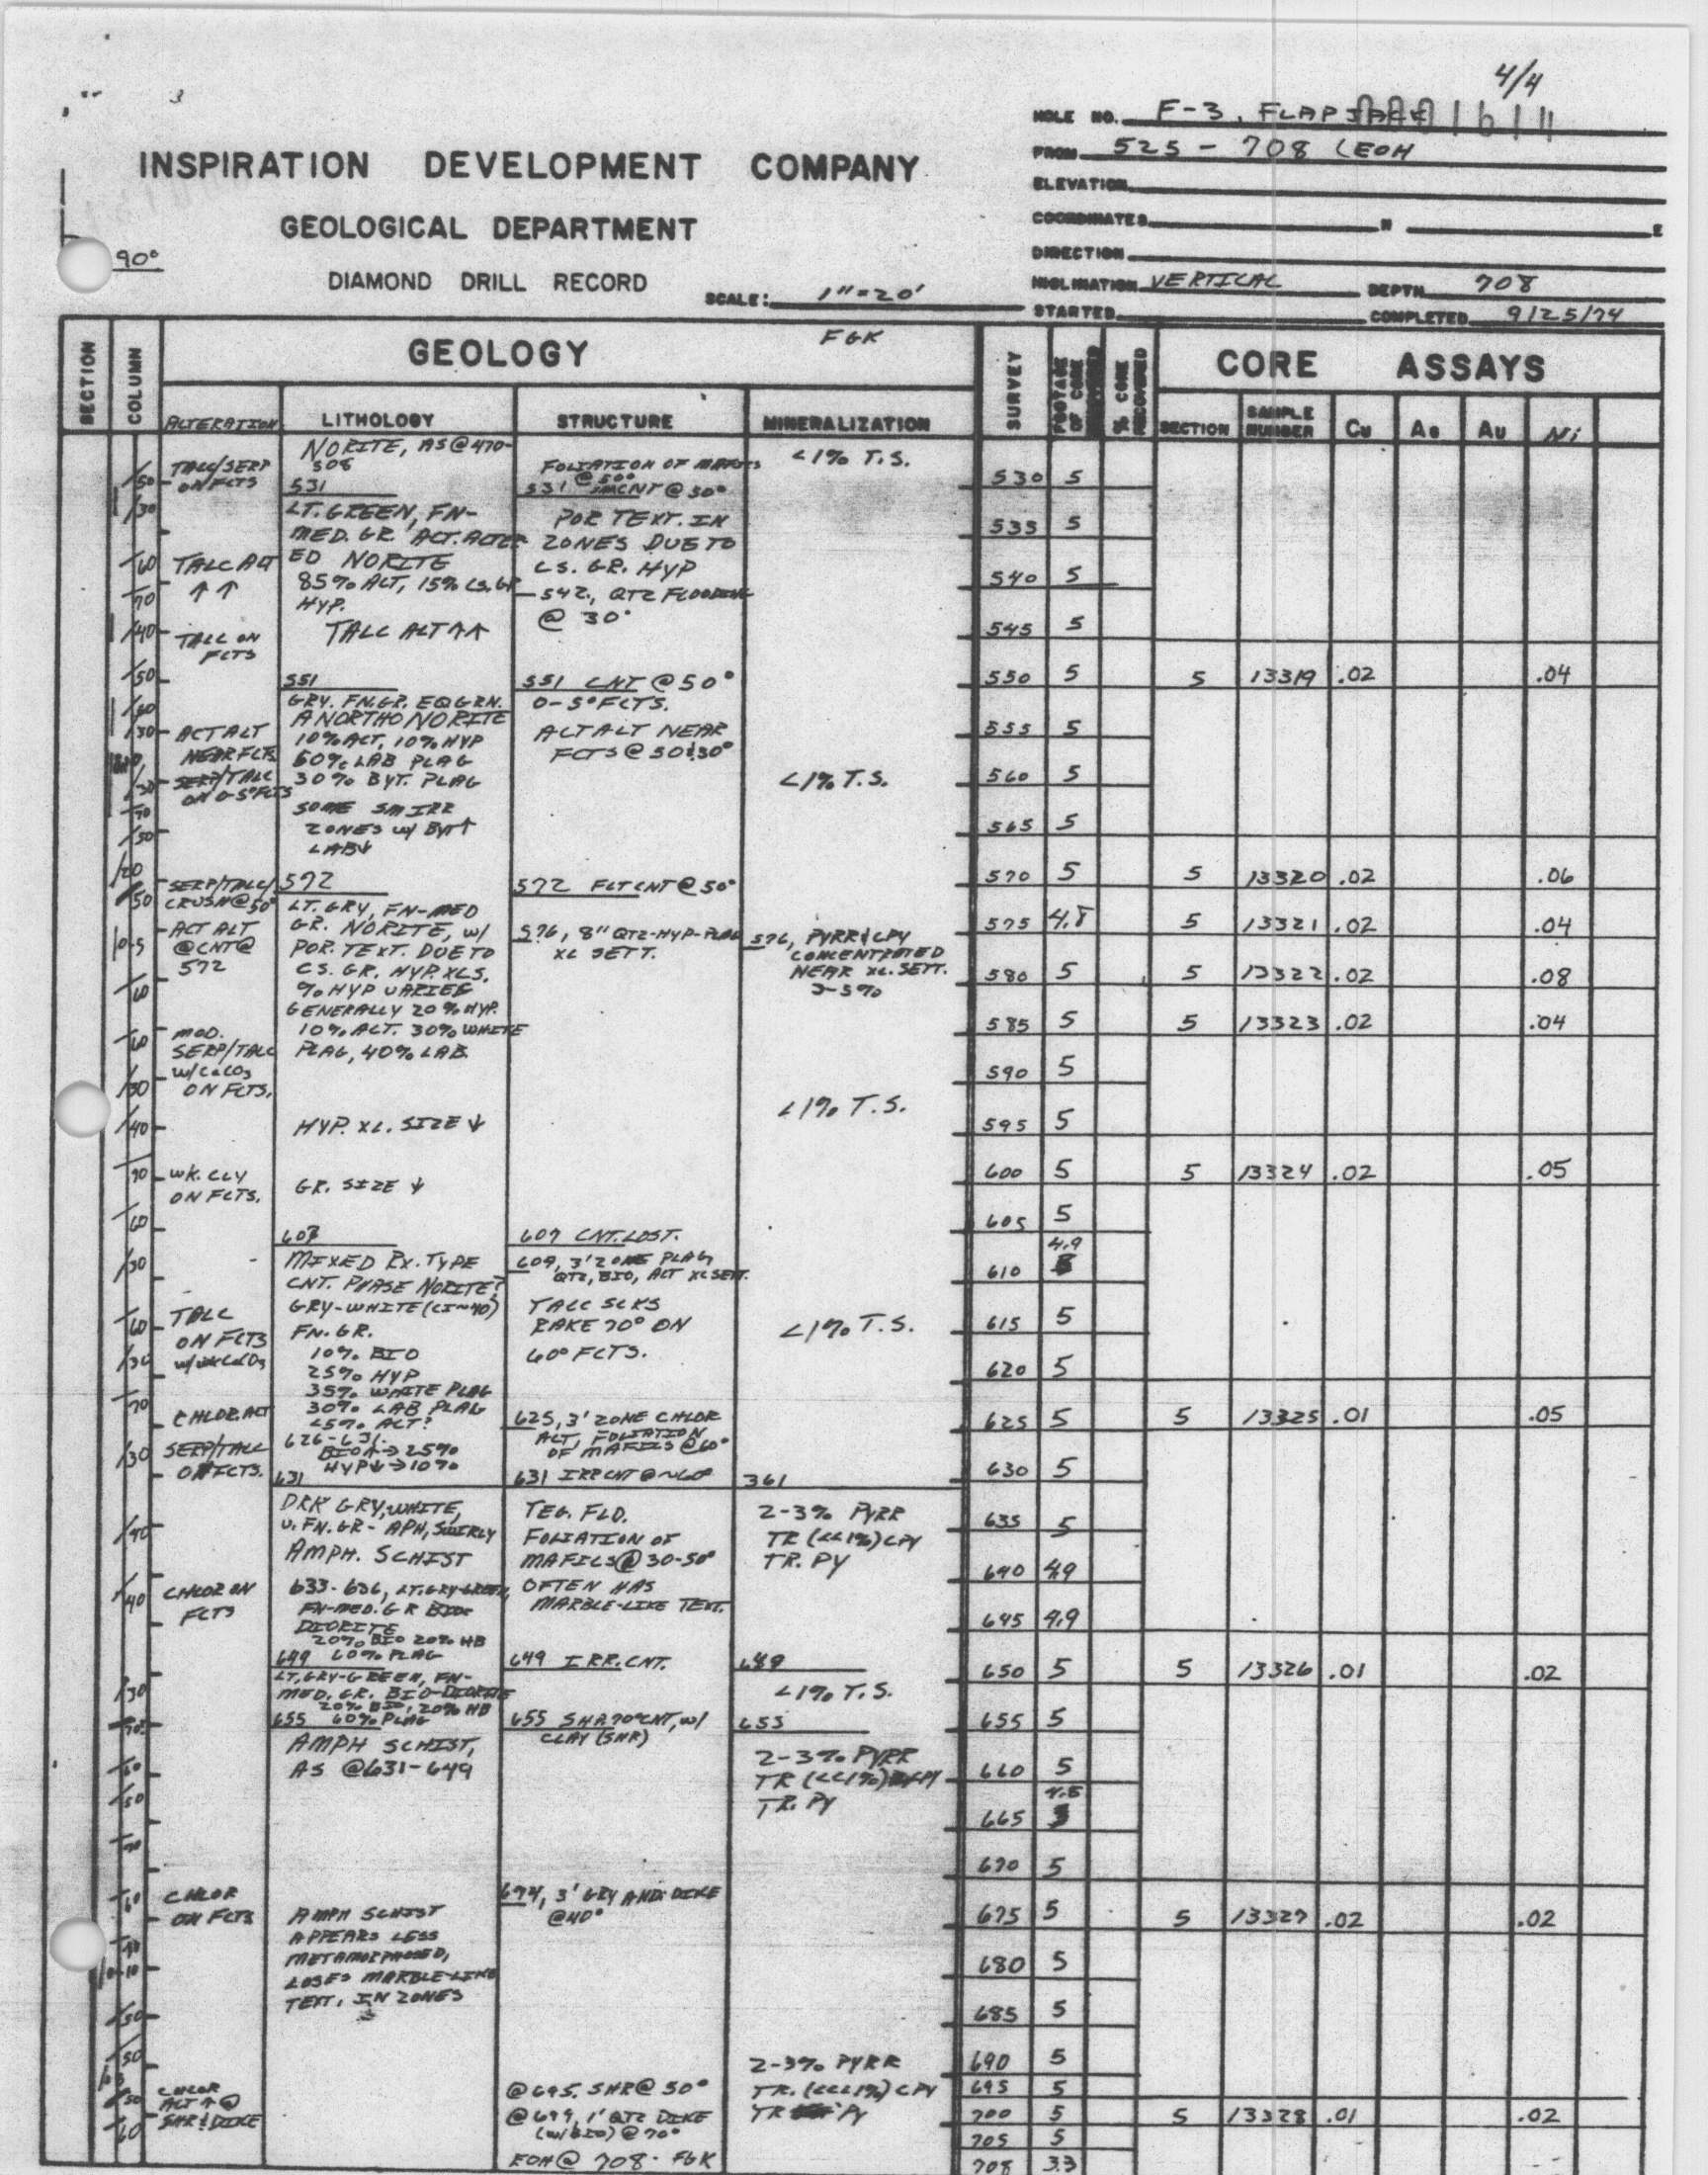 4/4
HOLE NO. F-3, FLAPJACK
FROM 525 - 708 (EOH
INSPIRATION DEVELOPMENT COMPANY
ELEVATION
COORDINATES N E
GEOLOGICAL DEPARTMENT
DIRECTION
90°
DIAMOND DRILL RECORD
SCALE: 1"=20'
INCLINATION VERTICAL DEPTH 708
STARTED COMPLETED 9/25/74
SECTION
COLUMN
GEOLOGY
FGK
SURVEY
FOOTAGE OF CORE RECOVERED
% CORE RECOVERED
CORE ASSAYS
ALTERATION LITHOLOGY STRUCTURE MINERALIZATION
SECTION SAMPLE NUMBER Cu Ag Au Ni
TALC/SERP
ON FCTS
TALC ALT
↑↑
TALC ON
FCTS
ACT ALT
NEAR FCTS
SERP/TALC
ON 0-5° FCTS
SERP/TALC/
CRUSH@50°
ACT ALT
@CNT@
572
MOD.
SERP/TALC
W/CaCO3
ON FCTS.
WK. CLY
ON FCTS.
TALC
ON FCTS
W/WK CaCO3
CHLOR ALT
SERP/TALC
ON FCTS.
CHLOR ON
FCTS
CHLOR
ON FCTS
CHLOR
ALT ↑ @
SHR & DIKE
NORITE, AS @ 470-
508
531
LT. GREEN, FN-
MED. GR. ACT. ALTER-
ED NORITE
85% ALT, 15% CS. GR
HYP.
TALC ALT ↑↑
551
GRY. FN. GR. EQGRN.
ANORTHO NORITE
10% ACT, 10% HYP
50% LAB PLAG
30% BYT. PLAG
SOME SM IRR
ZONES W/ BYT↑
LAB↓
572
LT. GRY, FN-MED
GR. NORITE, W/
POR. TEXT. DUE TO
CS. GR. HYP. XLS.
% HYP VARIES
GENERALLY 20% HYP.
10% ACT. 30% WHITE
PLAG, 40% LAB
HYP. XL. SIZE ↓
GR. SIZE ↓
607
MIXED RX. TYPE
CNT. PHASE NORITE?
GRY-WHITE (CI~40)
FN. GR.
10% BIO
25% HYP
35% WHITE PLAG
30% LAB PLAG
<5% ACT?
626-631.
BIO↑→25%
HYP↓→10%
631
DRK GRY, WHITE,
V. FN. GR - APH, SWIRLY
AMPH. SCHIST
633-636, LT. GRY-GREEN,
FN-MED. GR BIO-
DIORITE
20% BIO 20% HB
649 60% PLAG
LT. GRY-GREEN, FN-
MED. GR. BIO-DIORITE
20% BIO, 20% HB
655 60% PLAG
AMPH SCHIST,
AS @631-649
AMPH SCHIST
APPEARS LESS
METAMORPHOSED,
LOSES MARBLE-LIKE
TEXT. IN ZONES
FOLIATION OF MAFICS
@ 50°
531 CNT @ 50°
POR TEXT. IN
ZONES DUE TO
CS. GR. HYP
542, QTZ FLOODING
@ 30°
551 CNT @ 50°
0-5° FCTS.
ACT ALT NEAR
FCTS @ 50&30°
572 FLT CNT @ 50°
576, 8" QTZ-HYP-PLAG
XL SETT.
607 CNT. LOST.
609, 3' ZONE PLAG
QTZ, BIO, ALT XL SETT.
TALC SCKS
RAKE 70° ON
60° FCTS.
625, 3' ZONE CHLOR
ALT, FOLIATION
OF MAFICS @ 60°
631 IRR CNT @ ~60°
TEG. FLD.
FOLIATION OF
MAFICS @ 30-50°
OFTEN HAS
MARBLE-LIKE TEXT.
649 IRR. CNT.
655 SHR 70° CNT, W/
CLAY (SHR)
674, 3' GRY AND. DIKE
@40°
@ 695, SHR @ 50°
@ 699, 1' QTZ DIKE
(W/BIO) @ 70°
EOH @ 708 - FGK
<1% T.S.
<1% T.S.
576, PYRR & CPY
CONCENTRATED
NEAR XL. SETT.
3-5%
<1% T.S.
<1% T.S.
361
2-3% PYRR
TR (<<1%) CPY
TR. PY
649
<1% T.S.
655
2-3% PYRR
TR (<<1%) CPY
TR. PY
2-3% PYRR
TR. (<<<1%) CPY
TR PY
530 5
535 5
540 5
545 5
550 5 5 13319 .02 .04
555 5
560 5
565 5
570 5 5 13320 .02 .06
575 4.8 5 13321 .02 .04
580 5 5 13322 .02 .08
585 5 5 13323 .02 .04
590 5
595 5
600 5 5 13324 .02 .05
605 5
610 4.9
615 5
620 5
625 5 5 13325 .01 .05
630 5
635 5
640 4.9
645 4.9
650 5 5 13326 .01 .02
655 5
660 5
665 4.8
670 5
675 5 5 13327 .02 .02
680 5
685 5
690 5
695 5
700 5 5 13328 .01 .02
705 5
708 3.3